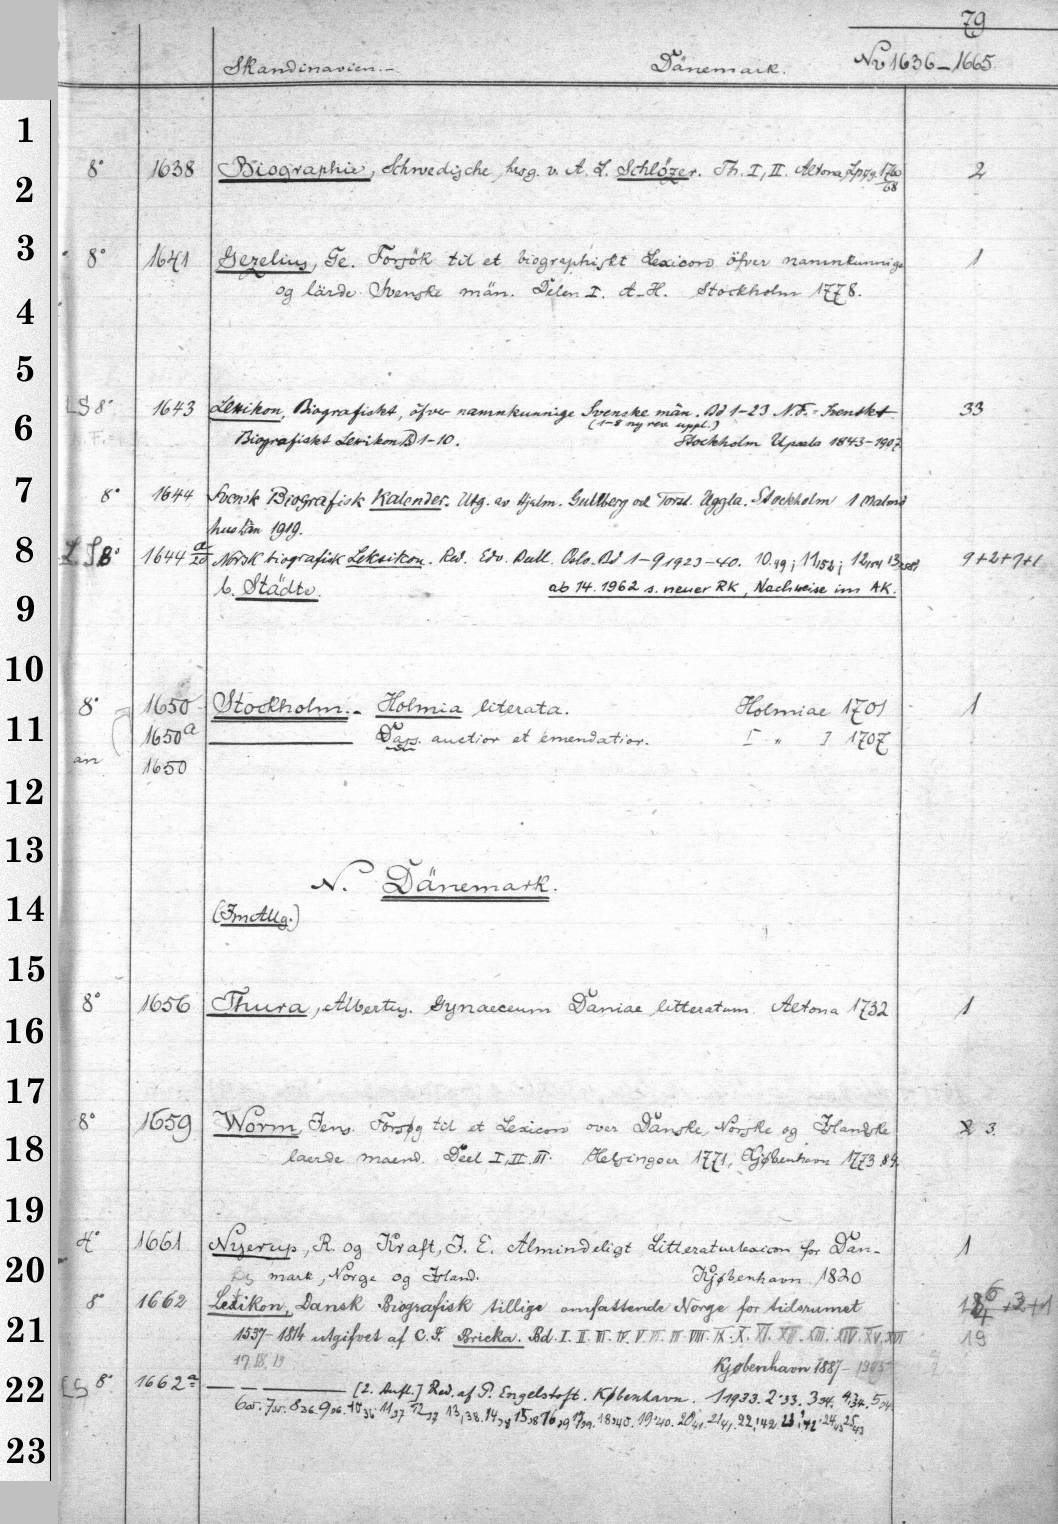 79
Skandinavien.- Dänemark. Nr 1636-1665
1
8° 1638 Biographie, Schwedische, hrsg. v. A. L. Schlözer. Th. I, II. Altona, Lpzg. 1760/68 2
2
3
8° 1641 Gezelius, Ge. Forsök til et biographiskt Lexicon öfver namnkunnige 1
og lärde Svenske män. Delen I. A-H. Stockholm 1778.
4
5
LS 8° 1643 Lexikon, Biografiskt, öfver namnkunnige Svenske män. Bd 1-23 N.F. Svenskt 33
(1-8 ny rev. uppl.)
6
Biografiskt Lexikon Bd 1-10. Stockholm Upsala 1843-1907
7
8° 1644 Svensk Biografisk Kalender. Utg. av Hjalm. Gullberg och Torst. Uggla. Stockholm 1 Malmö
hus län 1919.
8
LS 8° 1644 a/20 Norsk biografisk Leksikon. Red. Edv. Bull. Oslo. Bd 1-9 1923-40. 10 49; 11 52; 12 54 13 9+2+1+1
b. Städte. ab 14. 1962 s. neuer RK, Nachweise im AK.
9
10
8° 1650 Stockholm.- Holmia literata. Holmiae 1701 1
11
1650a Dass. auctior et emendatior. [ " ] 1707
an 1650
12
13
N. Dänemark.
14
(Im Allg.)
15
8° 1656 Thura, Albertus. Gynaeceum Daniae litteratum. Altona 1732 1
16
17
8° 1659 Worm, Jens. Forsøg til et Lexicon over Danske, Norske og Islandske 2 3.
18
laerde maend. Deel I, II. III. Helsingoer 1771, Kjøbenhavn 1773 84.
19
4° 1661 Nyerup, R. og Kraft, J. E. Almindeligt Litteraturlexicon for Dan- 1
20
mark, Norge og Island. Kjøbenhavn 1820
8° 1662 Lexikon, Dansk Biografisk tillige omfattende Norge for tidsrumet +3+1
21
1537-1814 utgifvet af C. F. Bricka. Bd. I. II. III. IV. V. VI. VII. VIII. IX. X. XI. XII. XIII. XIV. XV. XVI 19
17, 18, 19 Kjøbenhavn 1887-1905
22
LS 8° 1662a [2. Aufl.] Red. af P. Engelstoft. København. 1 1933. 2 33. 3 34. 4 34. 5 34.
6 35. 7 35. 8 36. 9 36. 10 36 11 37 12 37 13, 38. 14 38 15 38 16 39 17 39. 18 40. 19 40. 20 41. 21 41. 22, 42. 23, 42 24 43 25 43
23